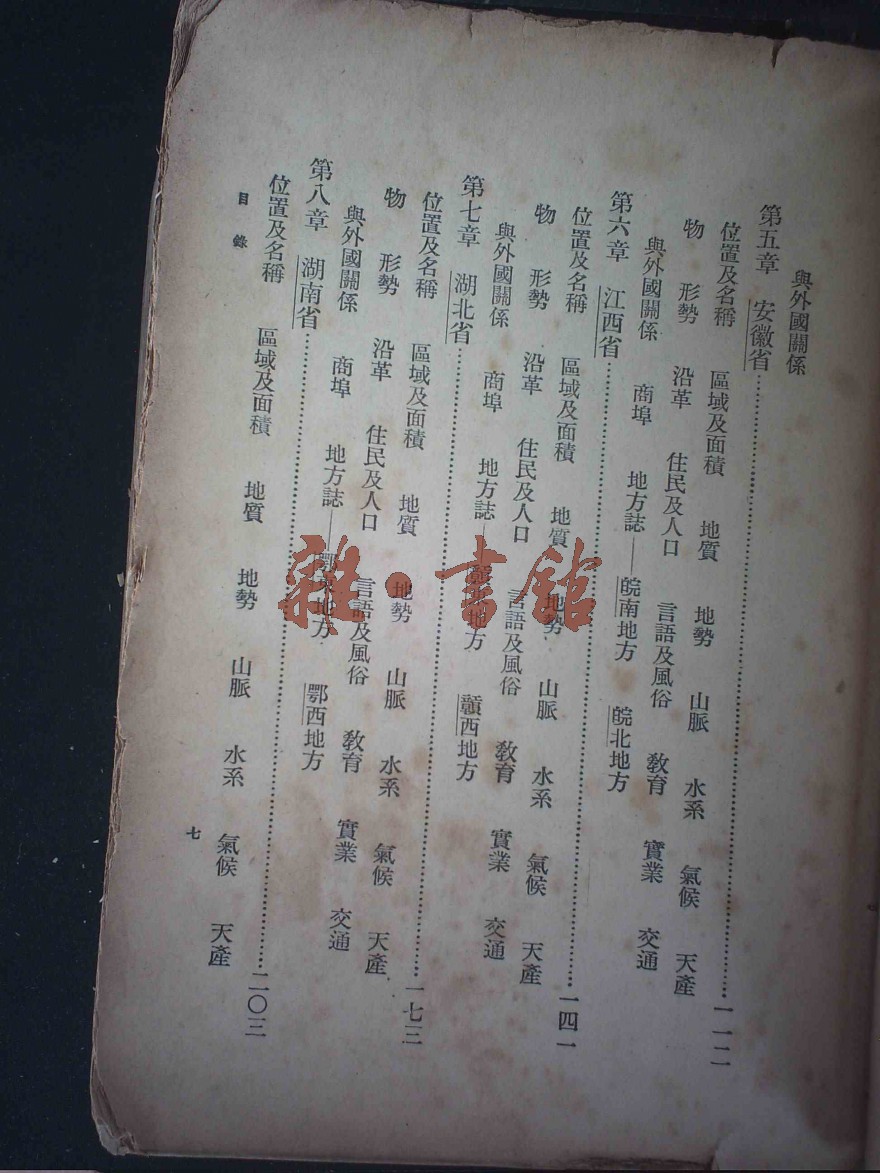 與外國關係
第五章 安徽省……………一一二
位置及名稱 區域及面積 地質 地勢 山脈 水系 氣候 天產
物 形勢 沿革 住民及人口 言語及風俗 教育 實業 交通
與外國關係 商埠 地方誌——皖南地方 皖北地方
第六章 江西省……………一四一
位置及名稱 區域及面積 地質 地勢 山脈 水系 氣候 天產
物 形勢 沿革 住民及人口 言語及風俗 教育 實業 交通
與外國關係 商埠 地方誌 地方 贛西地方
第七章 湖北省……………一七三
位置及名稱 區域及面積 地質 地勢 山脈 水系 氣候 天產
物 形勢 沿革 住民及人口 言語及風俗 教育 實業 交通
與外國關係 商埠 地方誌——鄂東地方 鄂西地方
第八章 湖南省……………二〇三
位置及名稱 區域及面積 地質 地勢 山脈 水系 氣候 天產
目錄
七
雜·書館